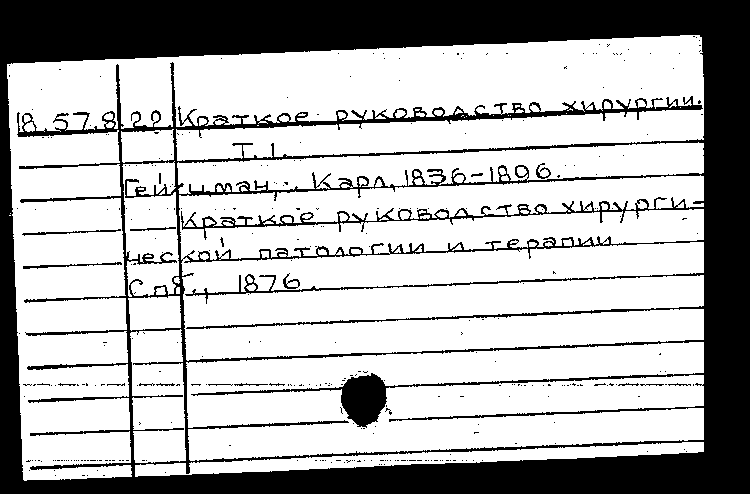 18.57.8.20 Краткое руководство хирургии.
Т. 1.
Гейкцман, Карл, 1836-1896.
Краткое руководство хирурги-
ческой патологии и терапии
Спб., 1876.